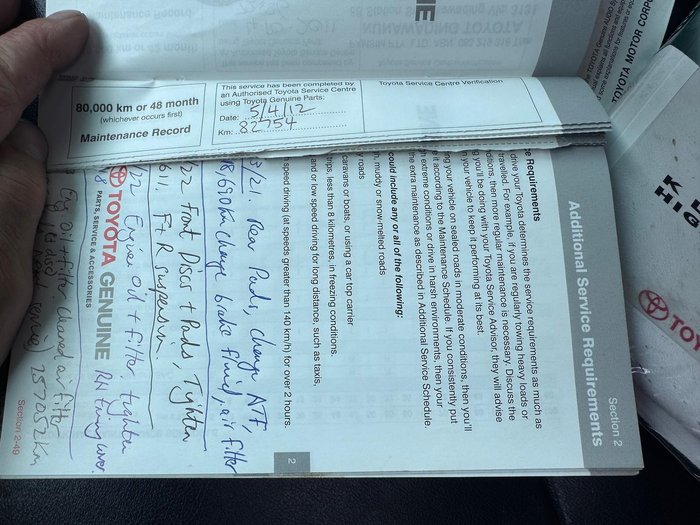 Maintenance Record
KUNAWADING TOYOTA
80,000 km or 48 month
(whichever occurs first)
Maintenance Record
This service has been completed by
an Authorised Toyota Service Centre
using Toyota Genuine Parts.
Date: 5/4/12
Km: 82754
Toyota Service Centre Verification
TOYOTA MOTOR CORPO
Section 2
Additional Service Requirements
e Requirements
drive your Toyota determines the service requirements as much as
ravelled. For example, if you are regularly towing heavy loads or
ditions, then more regular maintenance is necessary. Discuss the
you'll be doing with your Toyota Service Advisor, they will advise
your vehicle to keep it performing at its best.
ng your vehicle on sealed roads in moderate conditions, then you'll
it according to the Maintenance Schedule. If you consistently put
n extreme conditions or drive in harsh environments, then your
e extra maintenance as described in Additional Service Schedule.
could include any or all of the following:
, muddy or snow-melted roads
y roads
caravans or boats, or using a car top carrier
trips, less than 8 kilometres, in freezing conditions.
and or low speed driving for long distance, such as taxis,
speed driving (at speeds greater than 140 km/h) for over 2 hours.
2
3/21 Rear Pads, change ATF,
18,680km change brake fluid, air filter
/22 Front Discs + Pads, Tighten
611, F+R suspension.
/22 Engine oil + filter, tighten
RH timing cover.
TOYOTA GENUINE
PARTS, SERVICE & ACCESSORIES
Eng oil + filter
air filter
service) 257052km
Section 2-49
TOY